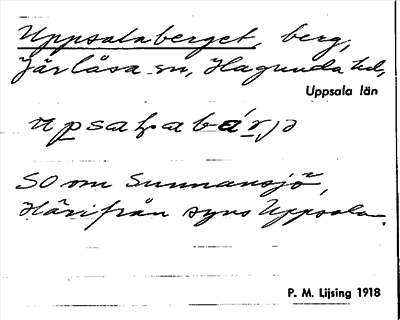 Uppsalaberget, berg,
Järlåsa sn, Hagunda hd,
Uppsala län
SO om Sunnansjö,
Härifrån syns Uppsala.
P. M. Lijsing 1918